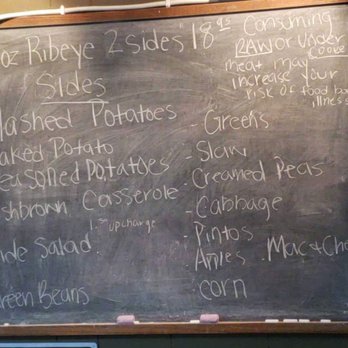 oz Ribeye 2 sides 18.95
Consuming
RAW or Under
meat may
increase your
risk of food bor
illness
Sides
lashed Potatoes
aked Potato
easoned Potatoes
shbrown Casserole
upcharge
ide Salad
reen Beans
- Greens
- Slaw
- Creamed Peas
- Cabbage
- Pintos
- Apples
. Mac & Che
- corn